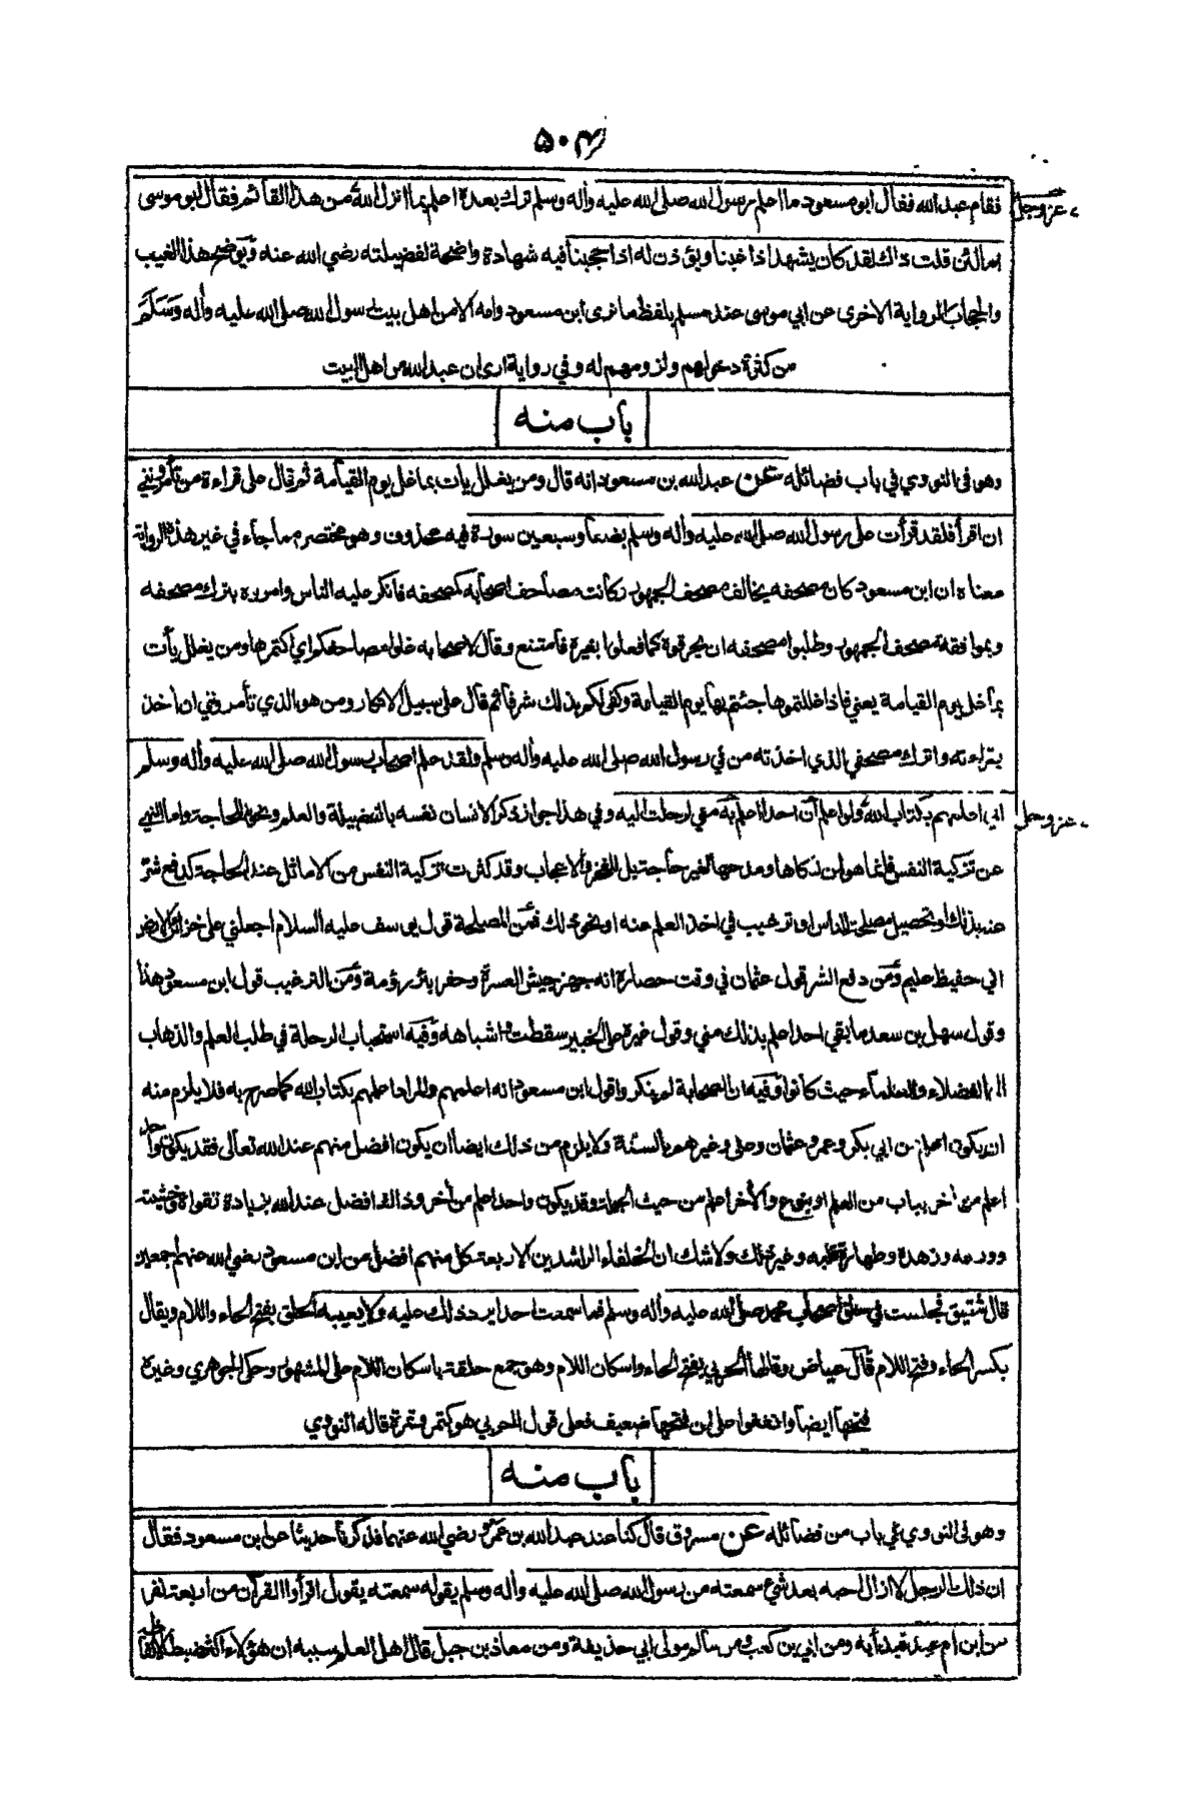 ۵۰۴
فقام عبد الله فقال ابو مسعود ما اعلم رسول الله صلى الله عليه وأله وسلم ترك بعدة اعلم بما انزل الله من هذا القائم فقال ابو موسى
عز وجل
امالئن قلت ذاك لقد كان يشهد اذا غبنا ويؤذن له اذا حجبنا فيه شهادة واضحة لفضيلته رضي الله عنه ويوضح هذا الغيب
والحجاب الرواية الاخرى عن ابي موسى عند مسلم بلفظ ما نرى ابن مسعود وامه الا من اهل بيت رسول الله صلى الله عليه وأله وسلم
من كثرة دخولهم ولزومهم له وفي رواية ارى ان عبد الله من اهل البيت
باب منه
وهو في النووي في باب فضائله عن عبد الله بن مسعود انه قال ومن يغلل يأت بما غل يوم القيامة ثم قال على قراءة من تأمرونني
ان اقرأ فلقد قرأت على رسول الله صلى الله عليه وأله وسلم بضعا وسبعين سورة فيه محذوف وهو مختصر مما جاء في غير هذه الرواية
معناه ان ابن مسعود كان مصحفه يخالف مصحف الجمهور وكانت مصاحف اصحابه كمصحفه فانكر عليه الناس وامروه بترك مصحفه
وبموافقة مصحف الجمهور وطلبوا مصحفه ان يحرقوة كما فعلوا بغيرة فامتنع وقال لاصحابه غلوا مصاحفكم اي اكتموها ومن يغلل يأت
بما غل يوم القيامة يعني فاذا غللتموها جئتم بها يوم القيامة وكفى لكم بذلك شرفا ثم قال على سبيل الانكار ومن هو الذي تأمرونني ان اخذ
بقراءته واترك مصحفي الذي اخذته من في رسول الله صلى الله عليه وأله وسلم ولقد علم اصحاب رسول الله صلى الله عليه وأله وسلم
اني اعلمهم بكتاب الله ولو اعلم ان احدا اعلم به مني لرحلت اليه وفي هذا جواز ذكر الانسان نفسه بالفضيلة والعلم ونحوه للحاجة واما النهي
عز وجل
عن تزكية النفس فانما هو لمن زكاها ومدحها لغير حاجة بل للفخر والاعجاب وقد كثرت تزكية النفس من الاماثل عند الحاجة كدفع شر
عنه بذلك او تحصيل مصلحة للناس او ترغيب في اخذ العلم عنه او نحو ذلك فمن المصلحة قول يوسف عليه السلام اجعلني على خزائن الارض
اني حفيظ عليم ومن دفع الشر قول عثمان في وقت حصارة انه جهز جيش العسرة وحفر بئر رومة ومن الترغيب قول ابن مسعود هذا
وقول سهل بن سعد ما بقي احد اعلم بذلك مني وقول غيرة على الخبير سقطت واشباهه وفيه استحباب الرحلة في طلب العلم والذهاب
الى الفضلاء والعلماء حيث كانوا وفيه ان الصحابة لم ينكروا قول ابن مسعود انه اعلمهم والمراد اعلمهم بكتاب الله كما صرح به فلا يلزم منه
ان يكون اعلم من ابي بكر وعمر وعثمان وعلي وغيرهم بالسنة ولا يلزم من ذلك ايضا ان يكون افضل منهم عند الله تعالى فقد يكون واحد
اعلم من اخر بباب من العلم او بنوع والأخر اعلم من حيث الجملة وقد يكون واحد اعلم من أخر وذاك افضل عند الله بزيادة تقواة وخشيته
وورعه وزهدة وطهارة قلبه وغير ذلك ولا شك ان الخلفاء الراشدين الاربعة كل منهم افضل من ابن مسعود رضي الله عنهم اجمعين
قال شقيق فجلست في حلق اصحاب محمد صلى الله عليه وأله وسلم فما سمعت احدا يرد ذلك عليه ولا يعيبه الحلق بفتح الحاء واللام ويقال
بكسر الحاء وفتح اللام قال عياض وقالها الحربي بفتح الحاء واسكان اللام وهو جمع حلقة باسكان اللام على المشهور وحكى الجوهري وغيرة
فتحها ايضا واتفقوا على ان فتحها ضعيف فعلى قول الحربي هو كتمر وتمرة قاله النووي
باب منه
وهو في النووي في باب من فضائله عن مسروق قال كنا عند عبد الله بن عمرو رضي الله عنهما فذكرنا حديثا عن ابن مسعود فقال
ان ذلك الرجل لا ازال احبه بعد شيء سمعته من رسول الله صلى الله عليه وأله وسلم يقوله سمعته يقول اقرأوا القرأن من اربعة نفر
من ابن ام عبد فبدأ به ومن ابي بن كعب ومن سالم مولى ابي حذيفة ومن معاذ بن جبل قال اهل العلم سببه ان هؤلاء اكثر ضبطا لالفاظه